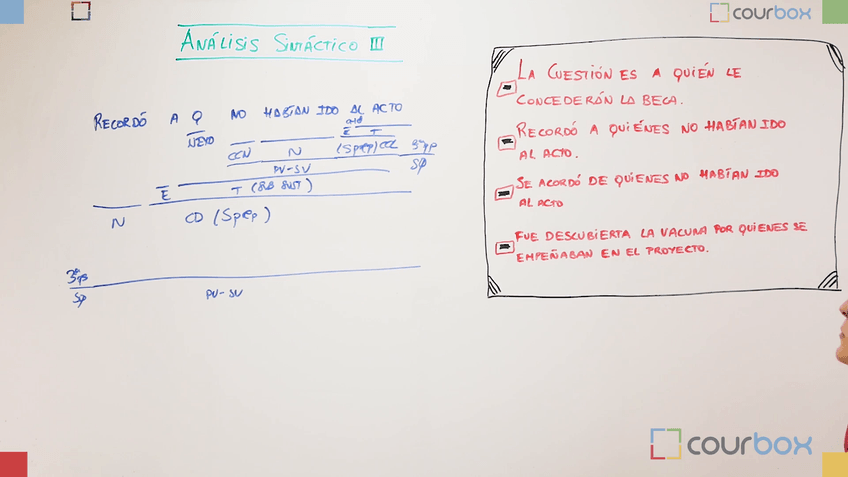 courbox
ANÁLISIS SINTÁCTICO III
RECORDÓ A Q NO HABÍAN IDO AL ACTO
NEXO
E T
CCN N (Sprep) CCL 3ªpp
PV-SV SØ
E T (SUB SUST)
N CD (Sprep)
3ªps
SØ PV-SV
LA CUESTIÓN ES A QUIÉN LE
CONCEDERÁN LA BECA.
RECORDÓ A QUIÉNES NO HABÍAN IDO
AL ACTO.
SE ACORDÓ DE QUIENES NO HABÍAN IDO
AL ACTO
FUE DESCUBIERTA LA VACUNA POR QUIENES SE
EMPEÑABAN EN EL PROYECTO.
courbox